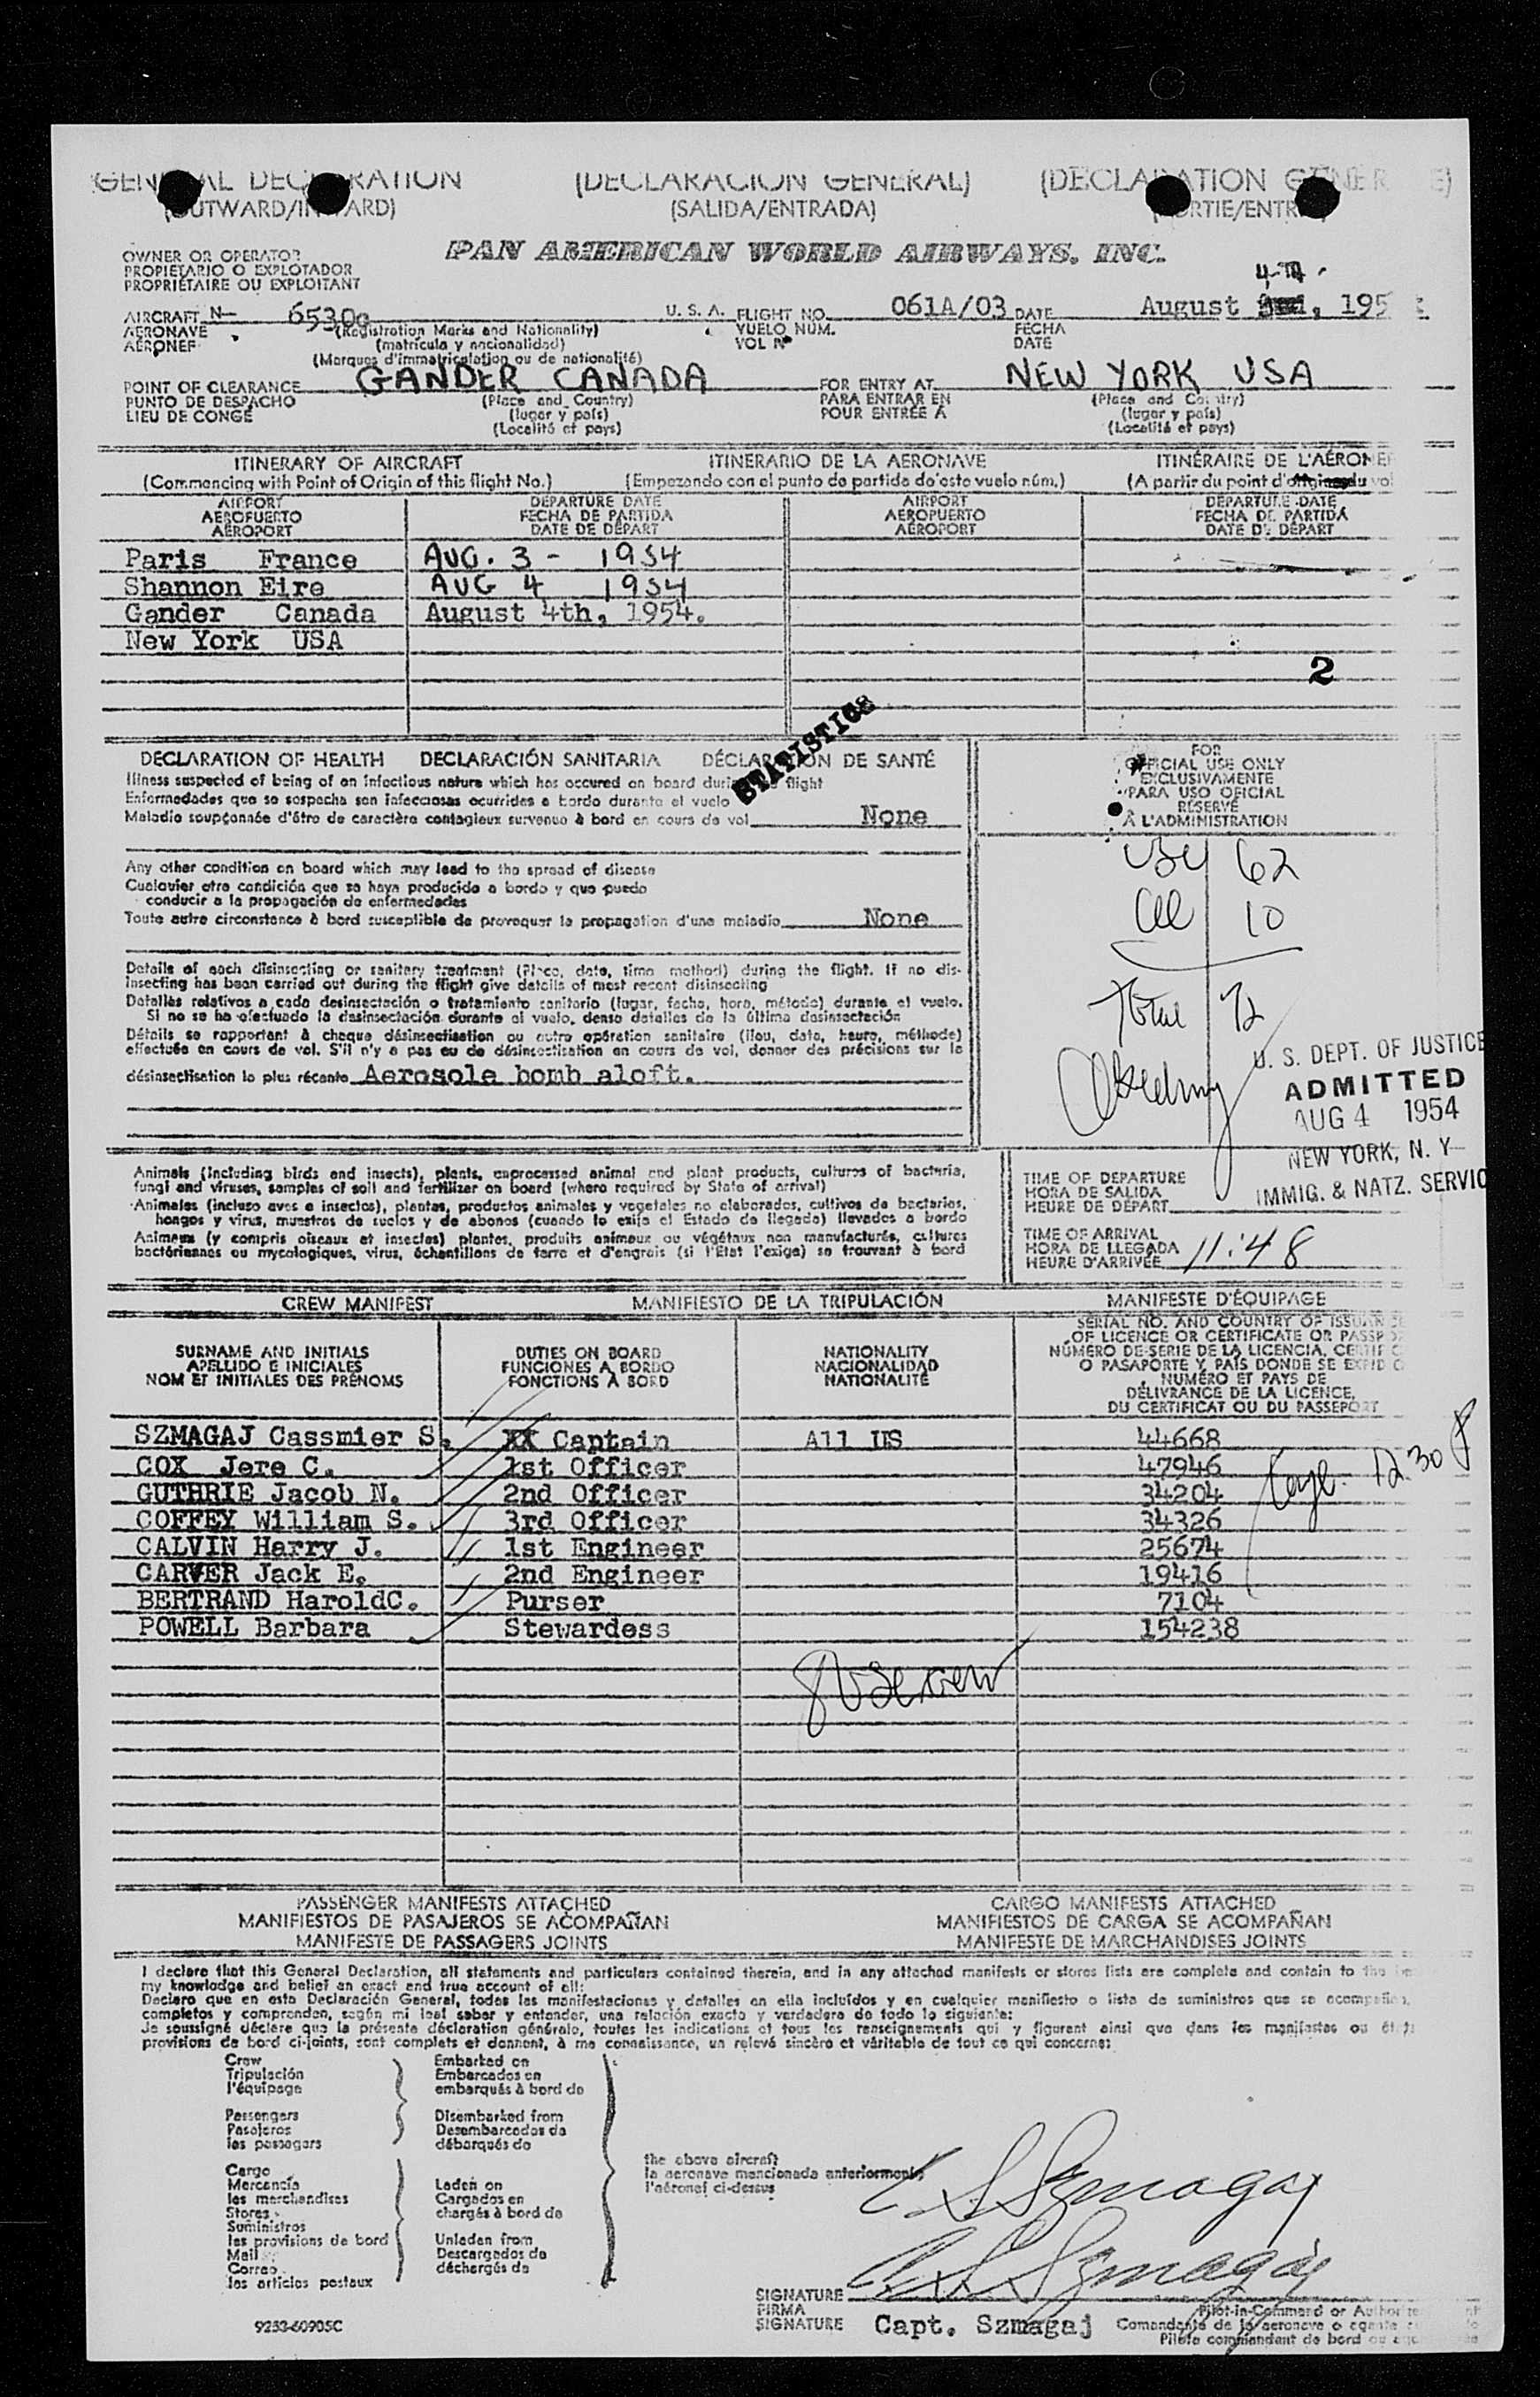 GENERAL DECLARATION (DECLARACION GENERAL) (DECLARATION GENERALE)
(OUTWARD/INWARD) (SALIDA/ENTRADA) (SORTIE/ENTREE)
OWNER OR OPERATOR PAN AMERICAN WORLD AIRWAYS, INC.
PROPIETARIO O EXPLOTADOR
PROPRIÉTAIRE OU EXPLOITANT
4TH
AIRCRAFT N- 6530C U. S. A. FLIGHT NO. 061A/03 DATE August 195
AERONAVE (Registration Marks and Nationality) VUELO NÚM. FECHA
AÉRONEF (matrícula y nacionalidad) VOL Nº DATE
(Marques d'immatriculation ou de nationalité)
POINT OF CLEARANCE GANDER CANADA FOR ENTRY AT NEW YORK USA
PUNTO DE DESPACHO (Place and Country) PARA ENTRAR EN (Place and Country)
LIEU DE CONGÉ (lugar y país) POUR ENTRÉE À (lugar y país)
(Localité et pays) (Localité et pays)
ITINERARY OF AIRCRAFT ITINERARIO DE LA AERONAVE ITINÉRAIRE DE L'AÉRONEF
(Commencing with Point of Origin of this flight No.) (Empezando con el punto de partida de este vuelo núm.) (A partir du point d'origine du vol
AIRPORT DEPARTURE DATE AIRPORT DEPARTURE DATE
AEROPUERTO FECHA DE PARTIDA AEROPUERTO FECHA DE PARTIDA
AÉROPORT DATE DE DÉPART AÉROPORT DATE DE DÉPART
Paris France AUG. 3 - 1954
Shannon Eire AUG 4 1954
Gander Canada August 4th, 1954.
New York USA
2
STATISTICS
DECLARATION OF HEALTH DECLARACIÓN SANITARIA DÉCLARATION DE SANTÉ
Illness suspected of being of an infectious nature which has occured on board during the flight
Enfermedades que se sospecha son infecciosas ocurridas a bordo durante el vuelo
Maladie soupçonnée d'être de caractère contagieux survenue à bord en cours de vol None
FOR
OFFICIAL USE ONLY
EXCLUSIVAMENTE
PARA USO OFICIAL
RÉSERVÉ
À L'ADMINISTRATION
Any other condition on board which may lead to the spread of disease
Cualquier otra condición que se haya producido a bordo y que puede
conducir a la propagación de enfermedades
Toute autre circonstance à bord susceptible de provoquer la propagation d'une maladie None
USC 62
All 10
Total 72
Details of each disinsecting or sanitary treatment (Place, date, time method) during the flight. If no dis-
insecting has been carried out during the flight give details of most recent disinsecting
Detalles relativos a cada desinsectación o tratamiento sanitario (lugar, fecha, hora, método) durante el vuelo.
Si no se ha efectuado la desinsectación durante el vuelo, dense detalles de la última desinsectación
Détails se rapportant à chaque désinsectisation ou autre opération sanitaire (lieu, date, heure, méthode)
effectuée en cours de vol. S'il n'y a pas eu de désinsectisation en cours de vol, donner des précisions sur la
désinsectisation la plus récente Aerosole bomb aloft.
U. S. DEPT. OF JUSTICE
ADMITTED
AUG 4 1954
NEW YORK, N. Y
IMMIG. & NATZ. SERVIC
Animals (including birds and insects), plants, unprocessed animal and plant products, cultures of bacteria,
fungi and viruses, samples of soil and fertilizer on board (where required by State of arrival)
Animales (incluso aves e insectos), plantas, productos animales y vegetales no elaborados, cultivos de bacterias,
hongos y virus, muestras de suelos y de abonos (cuando lo exija el Estado de llegada) llevados a bordo
Animaux (y compris oiseaux et insectes) plantes, produits animaux ou végétaux non manufacturés, cultures
bactériennes ou mycologiques, virus, échantillons de terre et d'engrais (si l'Etat l'exige) se trouvant à bord
TIME OF DEPARTURE
HORA DE SALIDA
HEURE DE DÉPART
TIME OF ARRIVAL
HORA DE LLEGADA 11:48
HEURE D'ARRIVÉE
CREW MANIFEST MANIFIESTO DE LA TRIPULACIÓN MANIFESTE D'ÉQUIPAGE
SURNAME AND INITIALS DUTIES ON BOARD NATIONALITY
APELLIDO E INICIALES FUNCIONES A BORDO NACIONALIDAD
NOM ET INITIALES DES PRÉNOMS FONCTIONS À BORD NATIONALITÉ
SERIAL NO. AND COUNTRY OF ISSUANCE
OF LICENCE OR CERTIFICATE OR PASSPO
NÚMERO DE SERIE DE LA LICENCIA, CERTIFIC
O PASAPORTE Y PAÍS DONDE SE EXPIDIO
NUMÉRO ET PAYS DE
DÉLIVRANCE DE LA LICENCE,
DU CERTIFICAT OU DU PASSEPORT
SZMAGAJ Cassmier S. XX Captain All US 44668
COX Jere C. 1st Officer 47946
GUTHRIE Jacob N. 2nd Officer 34204
COFFEY William S. 3rd Officer 34326
CALVIN Harry J. 1st Engineer 25674
CARVER Jack E. 2nd Engineer 19416
BERTRAND HaroldC. Purser 7104
POWELL Barbara Stewardess 154238
12 30 P
8 USC crew
PASSENGER MANIFESTS ATTACHED CARGO MANIFESTS ATTACHED
MANIFIESTOS DE PASAJEROS SE ACOMPAÑAN MANIFIESTOS DE CARGA SE ACOMPAÑAN
MANIFESTE DE PASSAGERS JOINTS MANIFESTE DE MARCHANDISES JOINTS
I declare that this General Declaration, all statements and particulars contained therein, and in any attached manifests or stores lists are complete and contain to the be
my knowledge and belief an exact and true account of all:
Declaro que en esta Declaración General, todas las manifestaciones y detalles en ella incluídos y en cualquier manifiesto o lista de suministros que se acompañan,
completos y comprenden, según mi leal saber y entender, una relación exacta y verdadera de todo lo siguiente:
Je soussigné déclare que la présente déclaration générale, toutes les indications et tous les renseignements qui y figurent ainsi que dans les manifestes ou états
provisions de bord ci-joints, sont complets et donnent, à ma connaissance, un relevé sincère et véritable de tout ce qui concerne:
Crew Embarked on
Tripulación Embarcados en
l'équipage embarqués à bord de
Passengers Disembarked from
Pasajeros Desembarcados de
les passagers débarqués de
the above aircraft
la aeronave mencionada anteriormente
l'aéronef ci-dessus
Cargo
Mercancía Laden on
les marchandises Cargados en
Stores chargés à bord de
Suministros
les provisions de bord Unladen from
Mail Descargados de
Correo déchargés de
les articles postaux
C. S. Szmagaj
C. S. Szmagaj
SIGNATURE Pilot-in-Command or Authorize
FIRMA Comandante de la aeronave o agente
SIGNATURE Capt. Szmagaj Pilote commandant de bord ou age
9253-60905C